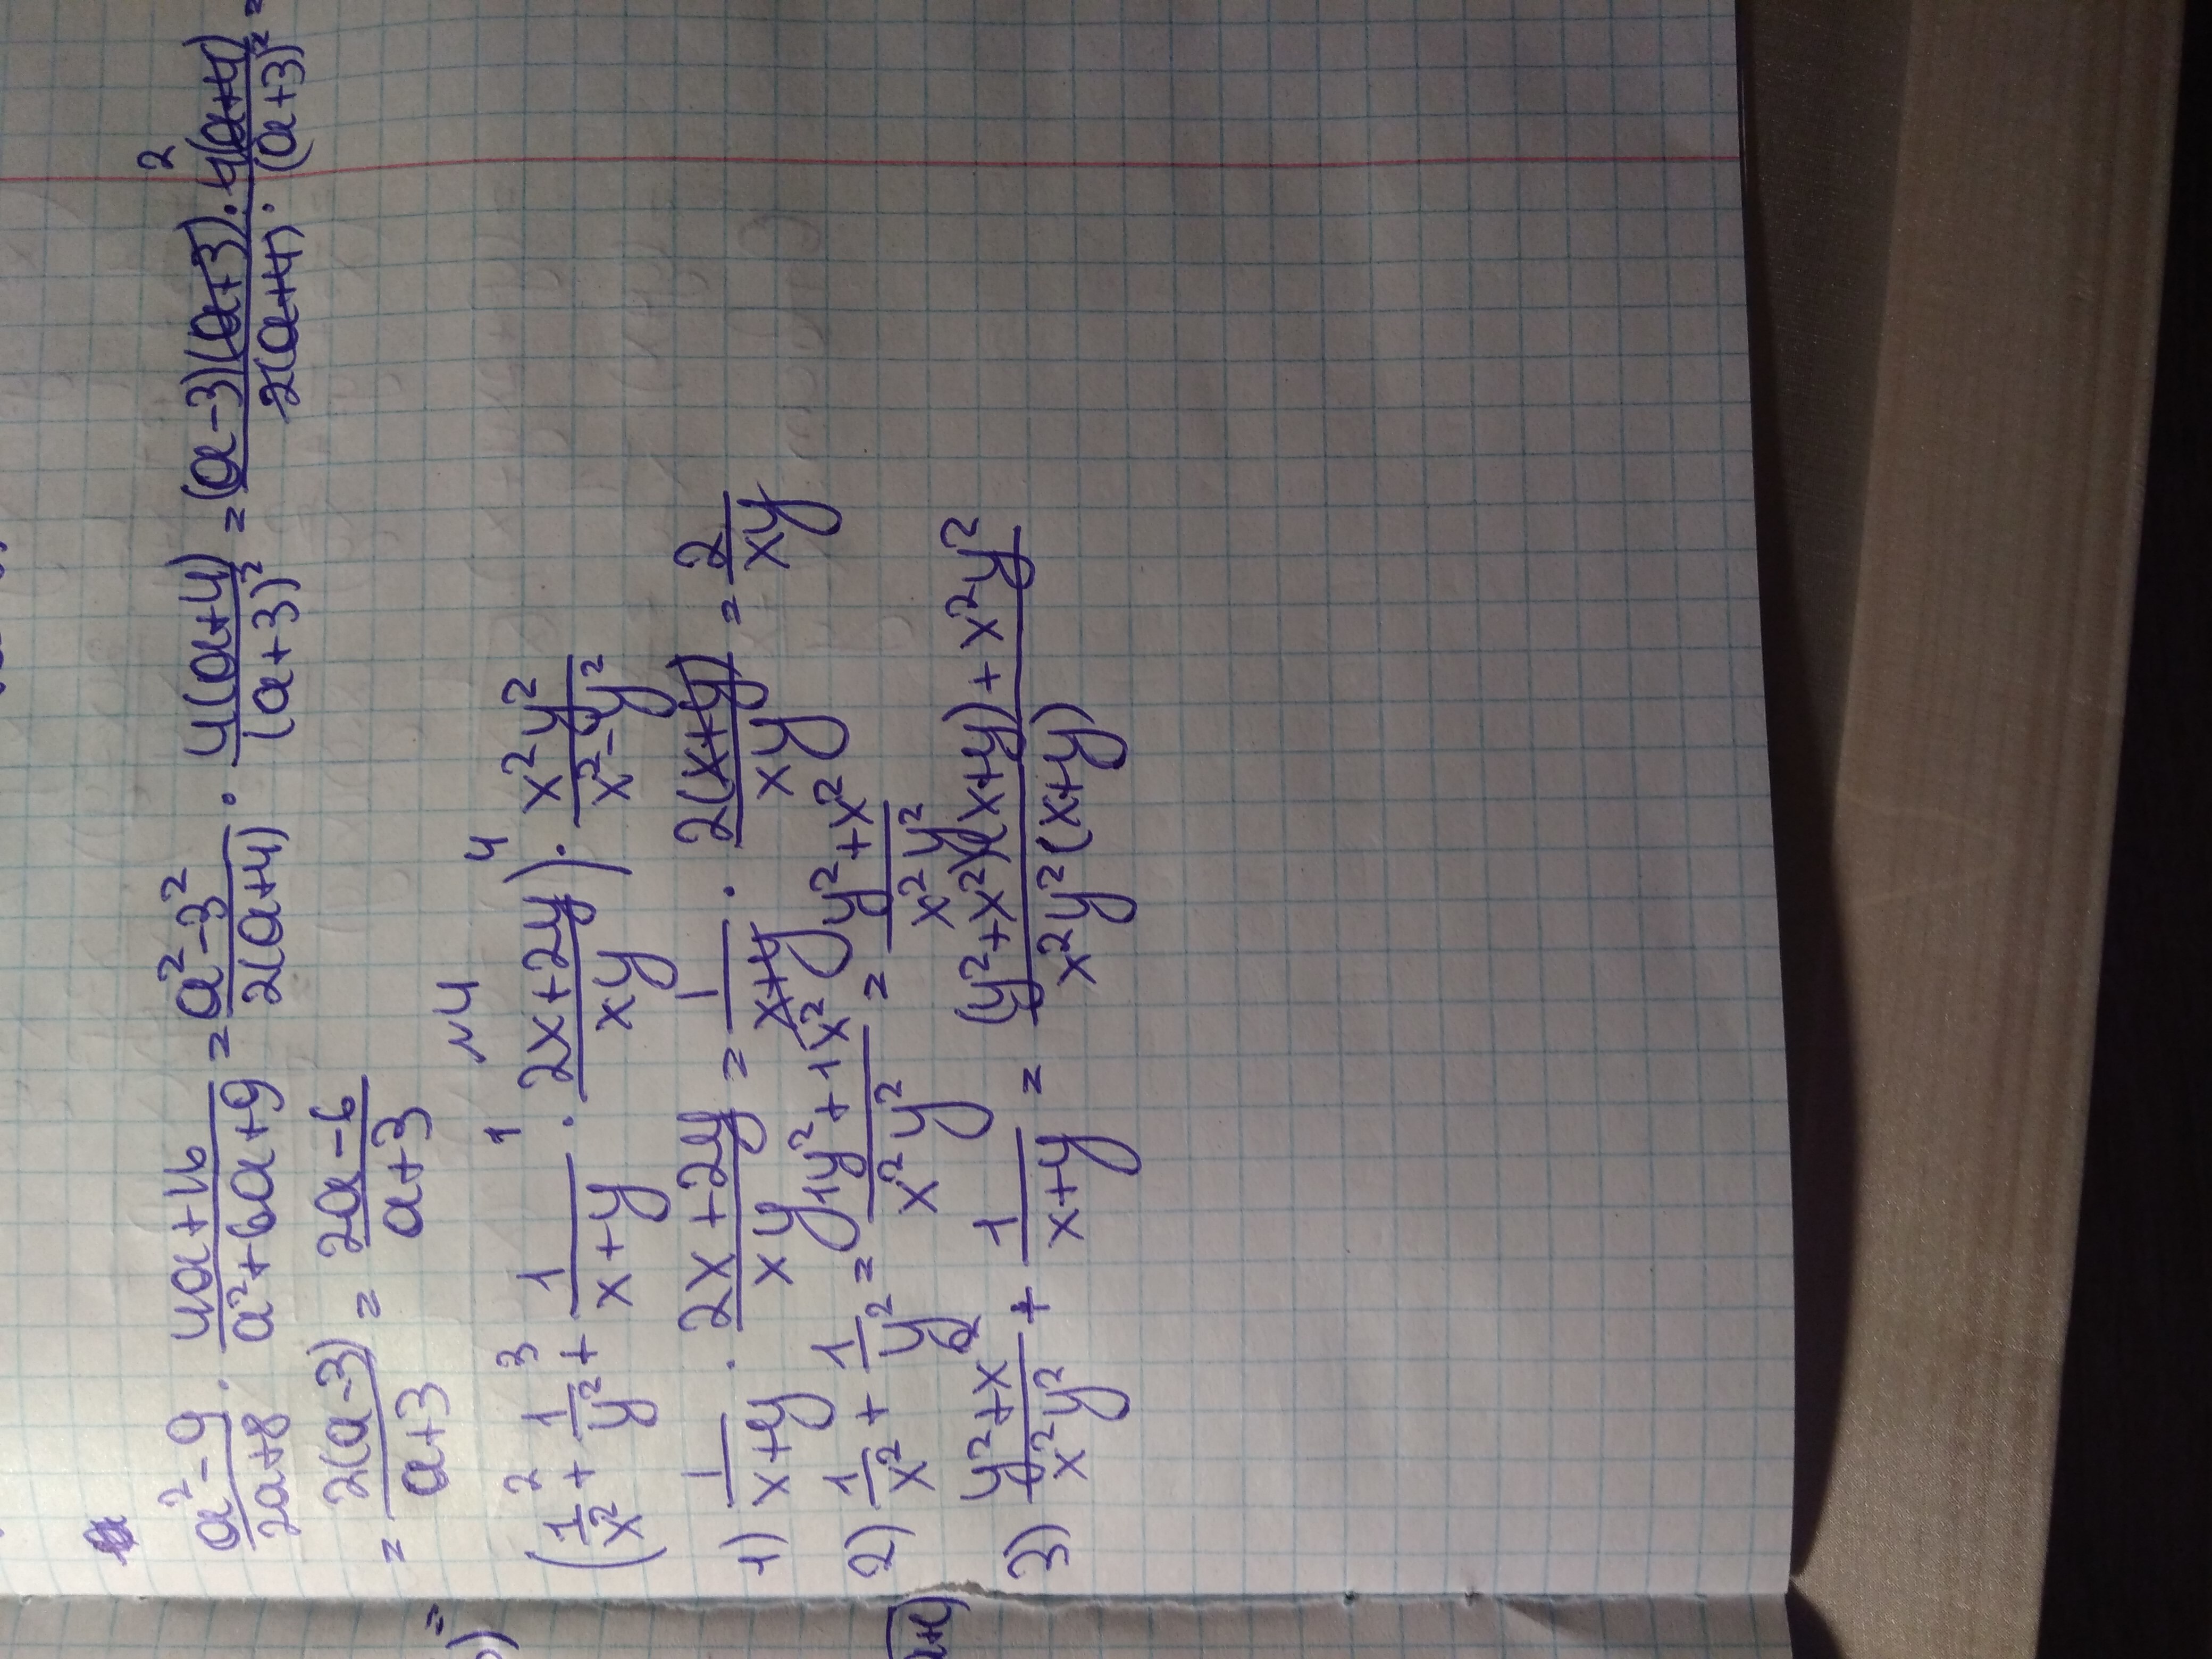 (a²-9)/(2a+8) · (4a+16)/(a²+6a+9) = (a²-3²)/(2(a+4)) · (4(a+4))/((a+3)²) = ((a-3)(a+3)·4(a+4))/(2(a+4)·(a+3)²) = 2
= (2(a-3))/(a+3) = (2a-6)/(a+3)
№4
2 3 1 4
(1/x² + 1/y² + 1/(x+y) · (2x+2y)/(xy)) · (x²y²)/(x²-y²)
1) 1/(x+y) · (2x+2y)/(xy) = 1/(x+y) · (2(x+y))/(xy) = 2/(xy)
2) 1/x² + 1/y² = (1y²+1x²)/(x²y²) = (y²+x²)/(x²y²)
3) (y²+x²)/(x²y²) + 1/(x+y) = ((y²+x²)(x+y)+x²y²)/(x²y²(x+y))